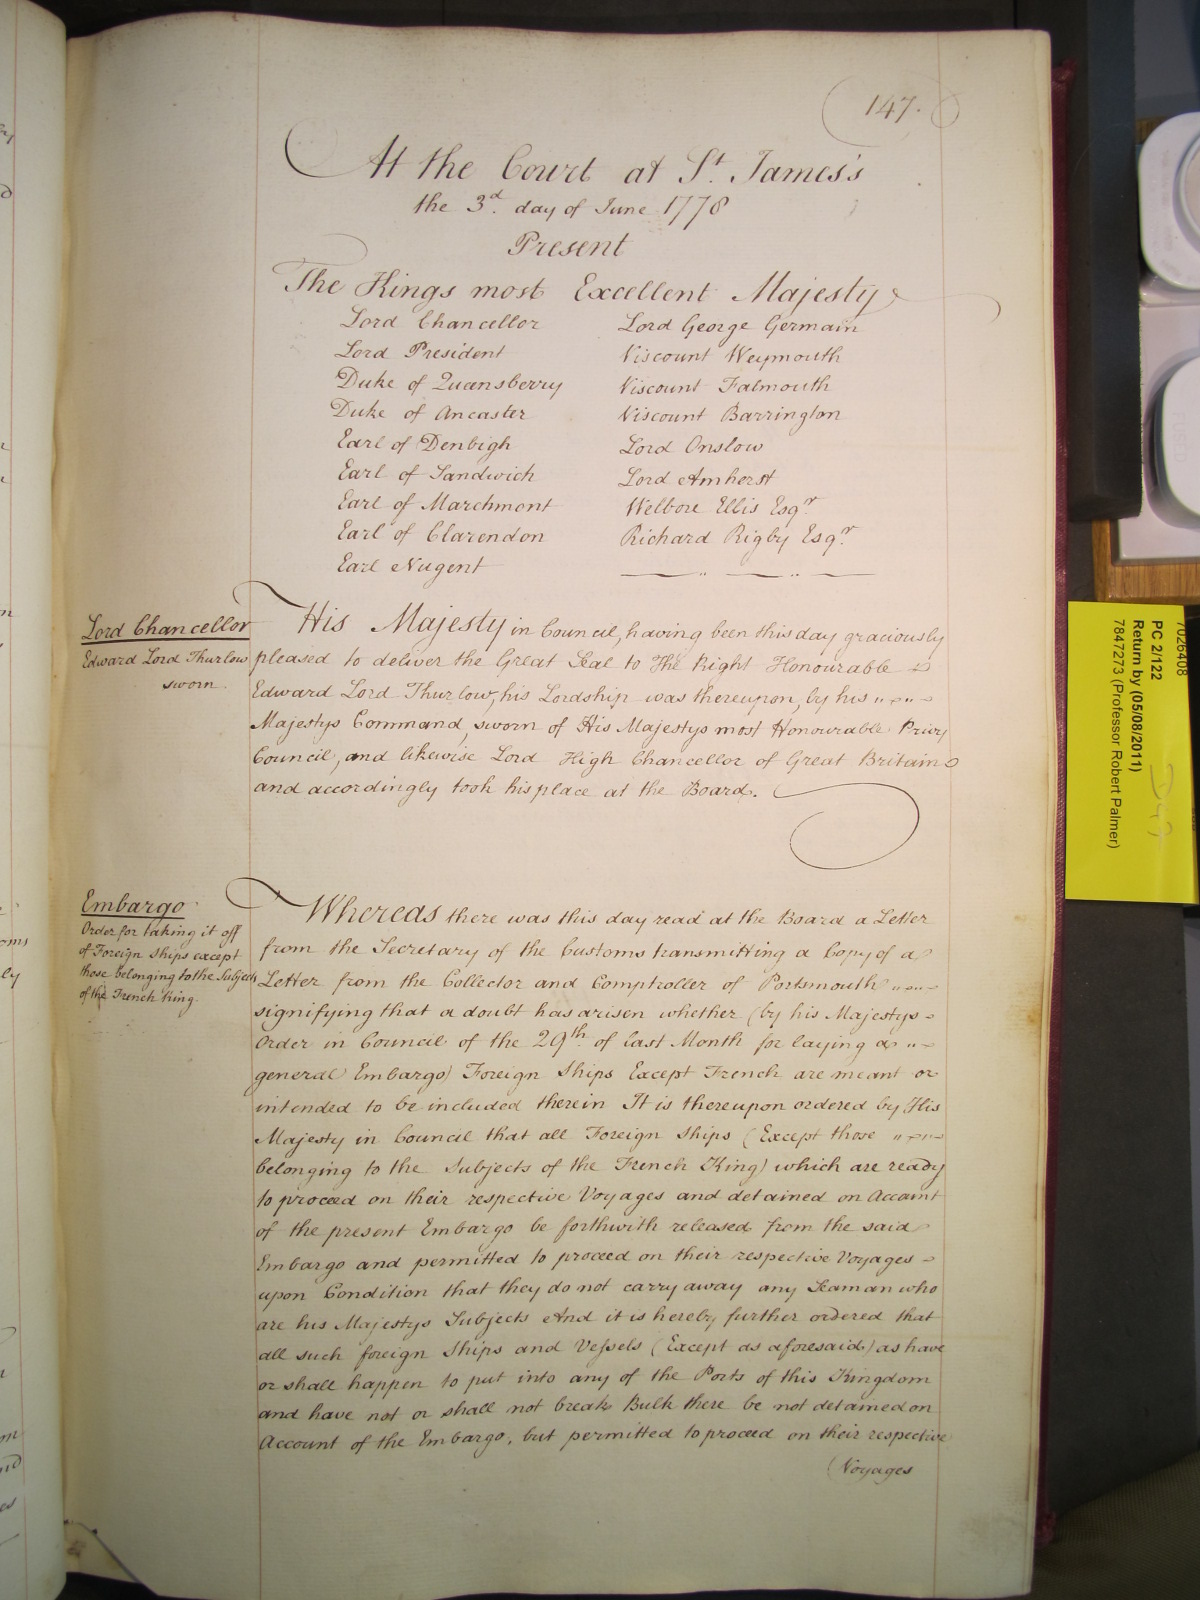 147.
At the Court at St. James's
the 3d. day of June 1778
Present
The Kings most Excellent Majesty
Lord Chancellor
Lord President
Duke of Queensberry
Duke of Ancaster
Earl of Denbigh
Earl of Sandwich
Earl of Marchmont
Earl of Clarendon
Earl Nugent
Lord George Germain
Viscount Weymouth
Viscount Falmouth
Viscount Barrington
Lord Onslow
Lord Amherst
Welbore Ellis Esqr.
Richard Rigby Esqr.
Lord Chancellor
Edward Lord Thurlow
sworn.
His Majesty in Council, having been this day graciously
pleased to deliver the Great Seal to The Right Honourable
Edward Lord Thurlow, his Lordship was thereupon, by his
Majestys Command, sworn of His Majestys most Honourable Privy
Council, and likewise Lord High Chancellor of Great Britain
and accordingly took his place at the Board.
Embargo
Order for taking it off
of Foreign Ships except
those belonging to the Subjects
of the French King.
Whereas there was this day read at the Board a Letter
from the Secretary of the Customs transmitting a Copy of a
Letter from the Collector and Comptroller of Portsmouth
signifying that a doubt has arisen whether (by his Majestys
Order in Council of the 29th. of last Month for laying a
general Embargo) Foreign Ships Except French are meant or
intended to be included therein It is thereupon ordered by His
Majesty in Council that all Foreign Ships (Except those
belonging to the Subjects of the French King) which are ready
to proceed on their respective Voyages and detained on Account
of the present Embargo be forthwith released from the said
Embargo and permitted to proceed on their respective Voyages
upon Condition that they do not carry away any Seaman who
are his Majestys Subjects And it is hereby further ordered that
all such foreign Ships and Vessels (Except as aforesaid) as have
or shall happen to put into any of the Ports of this Kingdom
and have not or shall not break Bulk there be not detained on
Account of the Embargo, but permitted to proceed on their respective
(Voyages
7026408
PC 2/122
Return by (05/08/2011)
7847273 (Professor Robert Palmer)